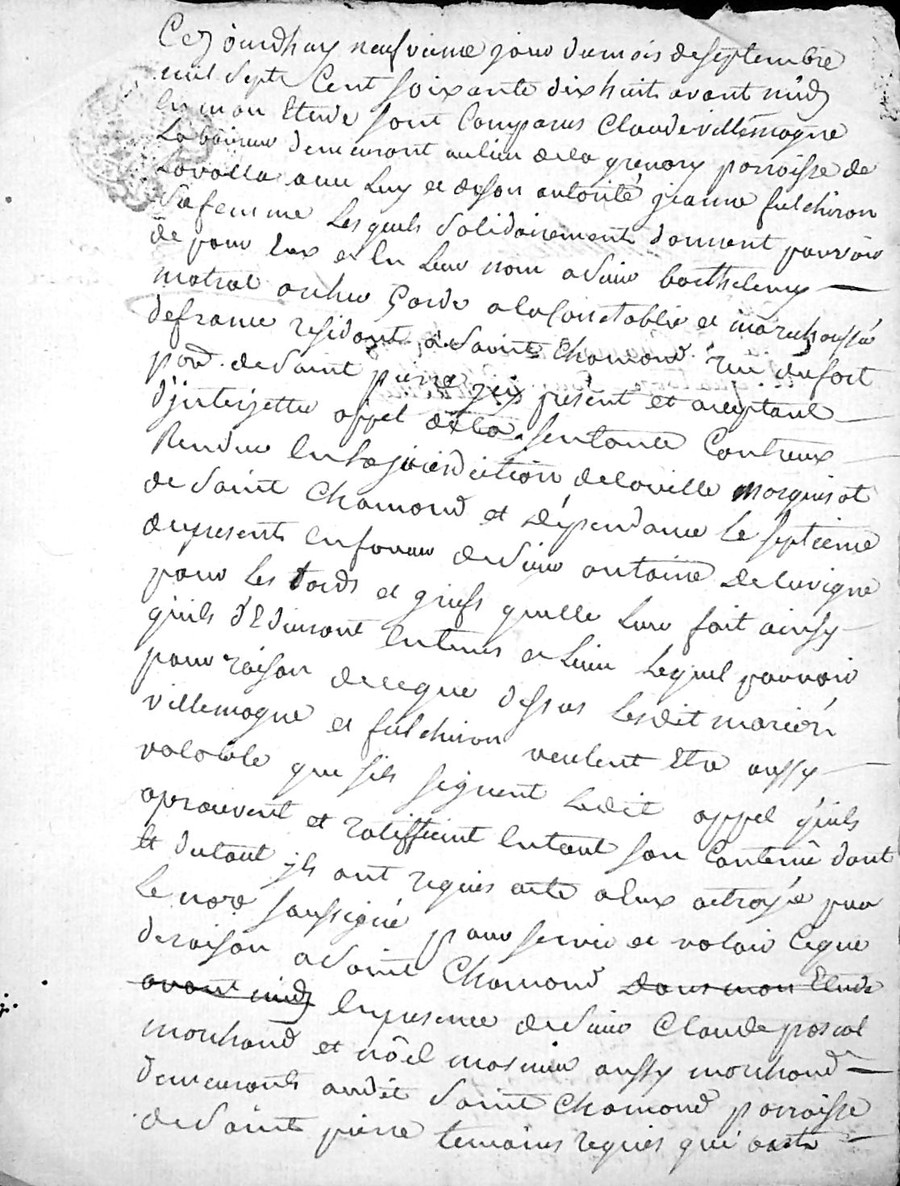 Cejourdhuy neufvieme jour dumois deseptembre
mil sept Cent soixante dixhuit avant midy
En mon Etude sont Comparus Claude villemagne
Laboureur demeurant aulieu dela grenary parroisse de
Lavalla avec luy et deson autorité jeanne fulchiron
Safemme Lesquels Solidairement donnent pouvoir
de pour Eux et En leur nom a Sieur barthelemy
matrat archer Garde alaConetablie et marechaussée
defrance residant a Saint Chamond rue dufort
parr. de Saint pierre jcy present et aceptant
d'jnterjetter appel dela Sentance Contreux
Rendue En la jurisdiction delaville marquisat
de Saint Chamond et dépendance le septieme
dupresent Enfaveur deSieur antoine Delavigne
pour les tords et griefs quelle leur fait ainsy
quils déduiront Entems et Lieu lequel pouvoir
pour raison deceque dessus lesdit mariés
villemagne et fulchiron veulent Etre aussy
valable que sils signent ledit appel quils
aprouvent et ratiffient Entout son Contenû dont
Et dutout jls ont requis acte a Eux octroyée par
le nore soussigné pour servir et valoir Ceque
deraison a Saint Chamond dans mon Etude
avant midy Enpresence de Sieur Claude pascal
marchand et nöel masnieu aussy marchand
demeurants audit Saint Chamond parroisse
de Saint pierre temoins requis qui ont